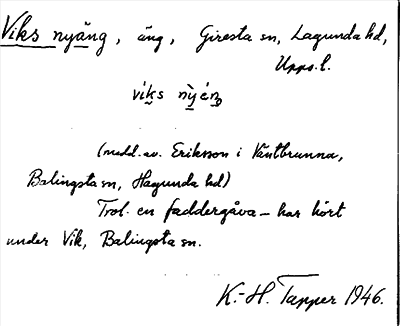 Viks nyäng, äng, Giresta sn, Lagunda hd,
Upps. l.
víks nỳ én
(medd. av. Eriksson i Väntbrunna,
Balingsta sn, Hagunda hd)
Trol. en faddergåva – har hört
under Vik, Balingsta sn.
K.-H. Tapper 1946.